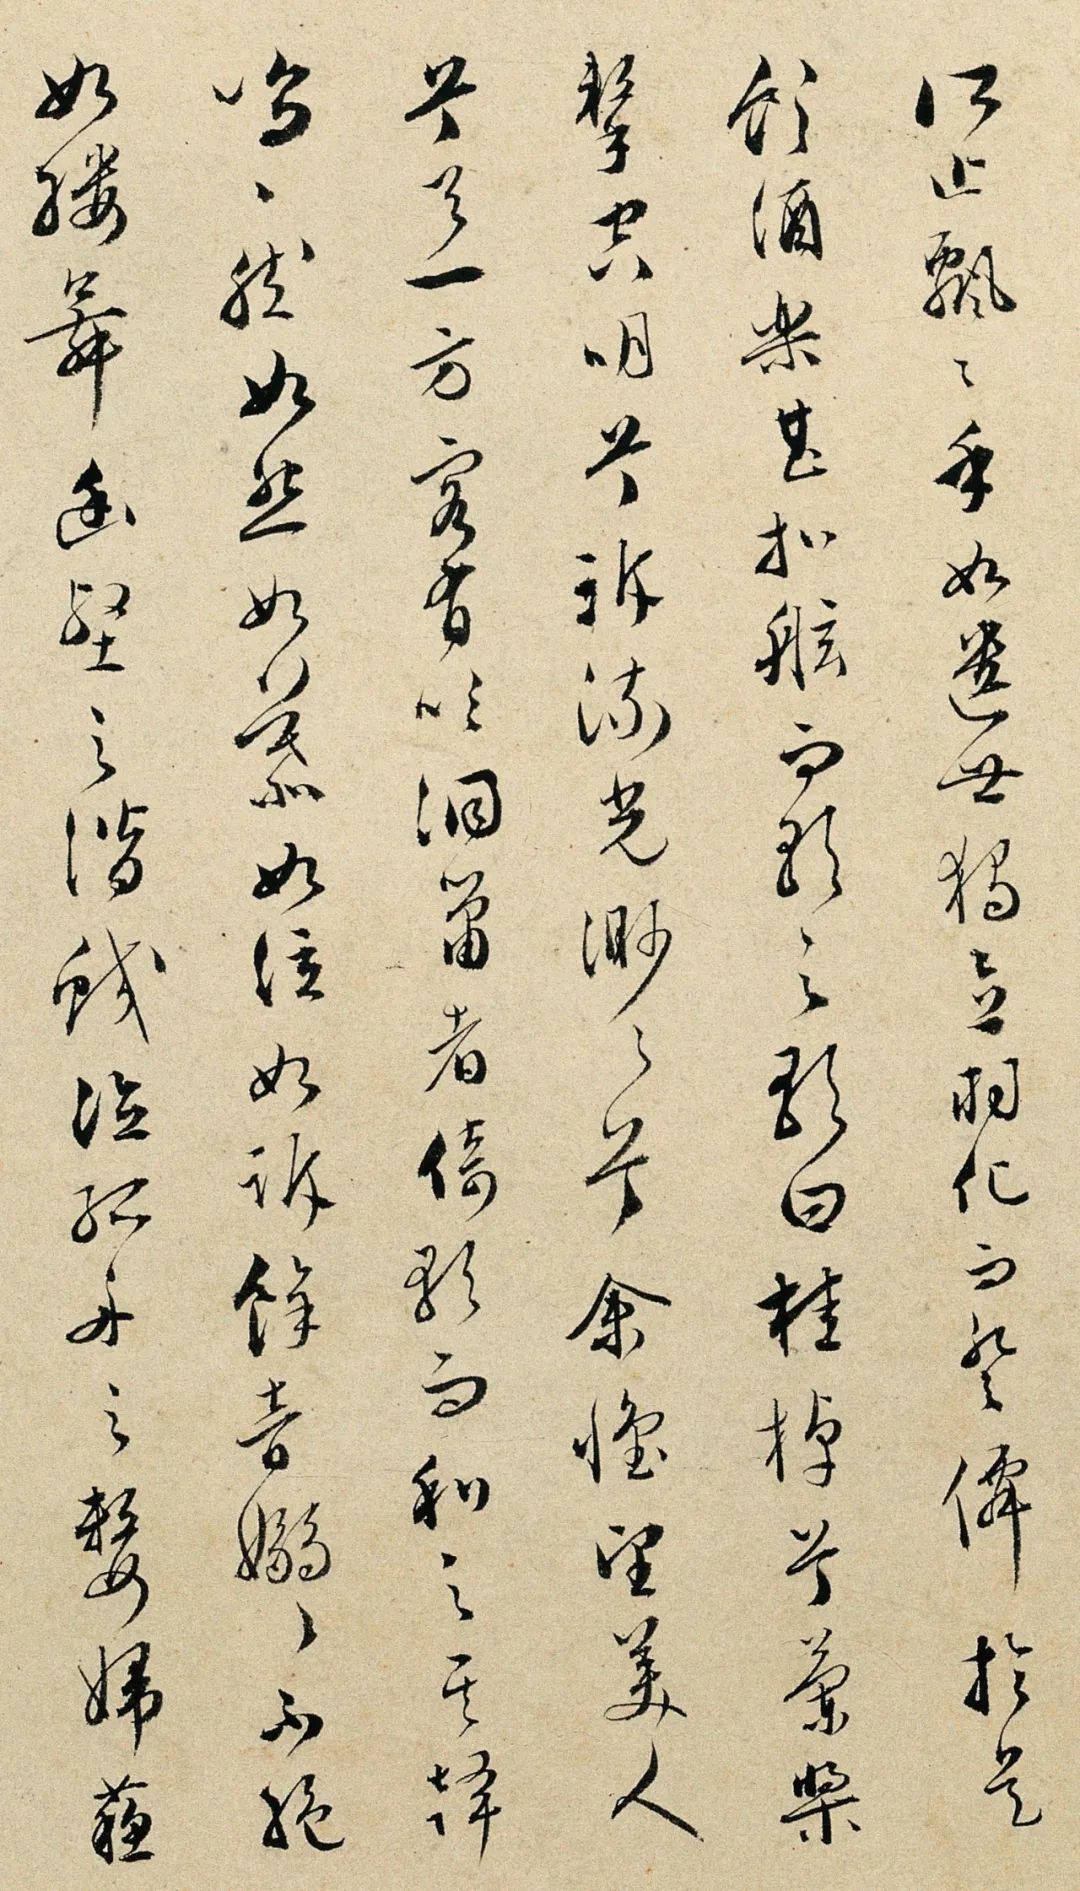 所止飄〻乎如遺世獨立羽化而登僊於是
飲酒樂甚扣舷而歌之歌曰桂棹兮蘭槳
擊空明兮訴流光渺〻兮余懷望美人
兮天一方客有吹洞簫者倚歌而和之其聲
嗚〻然如怨如慕如泣如訴餘音嫋〻不絕
如縷舞幽壑之潛蛟泣孤舟之嫠婦蘇